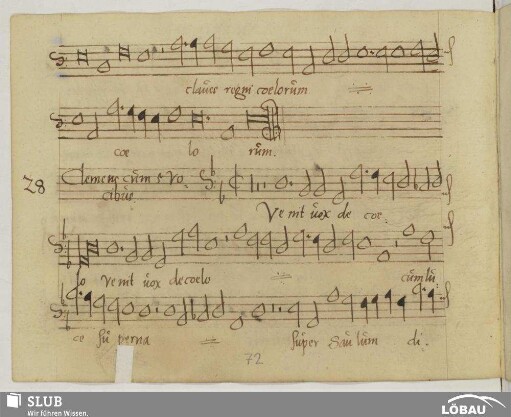 claues regni coelorum
coe lo rum.
28
Clemens cum 5 Vo
cibus.
Ve nit uox de coe
lo Ve nit uox de coelo cum lu
ce su perna super Saulum di.
72
SLUB
Wir führen Wissen.
LÖBAU